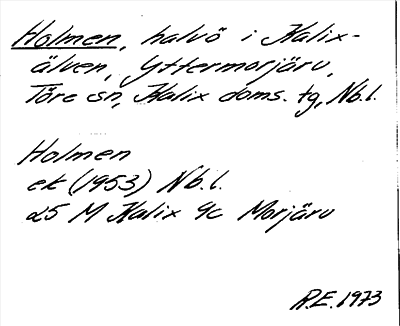 Holmen, halvö i Kalix-
älven, Yttermorjärv,
Töre sn, Kalix doms. tg, Nb.l.
Holmen
ek (1953) Nb.l.
25 M Kalix 9c Morjärv
R.E. 1973